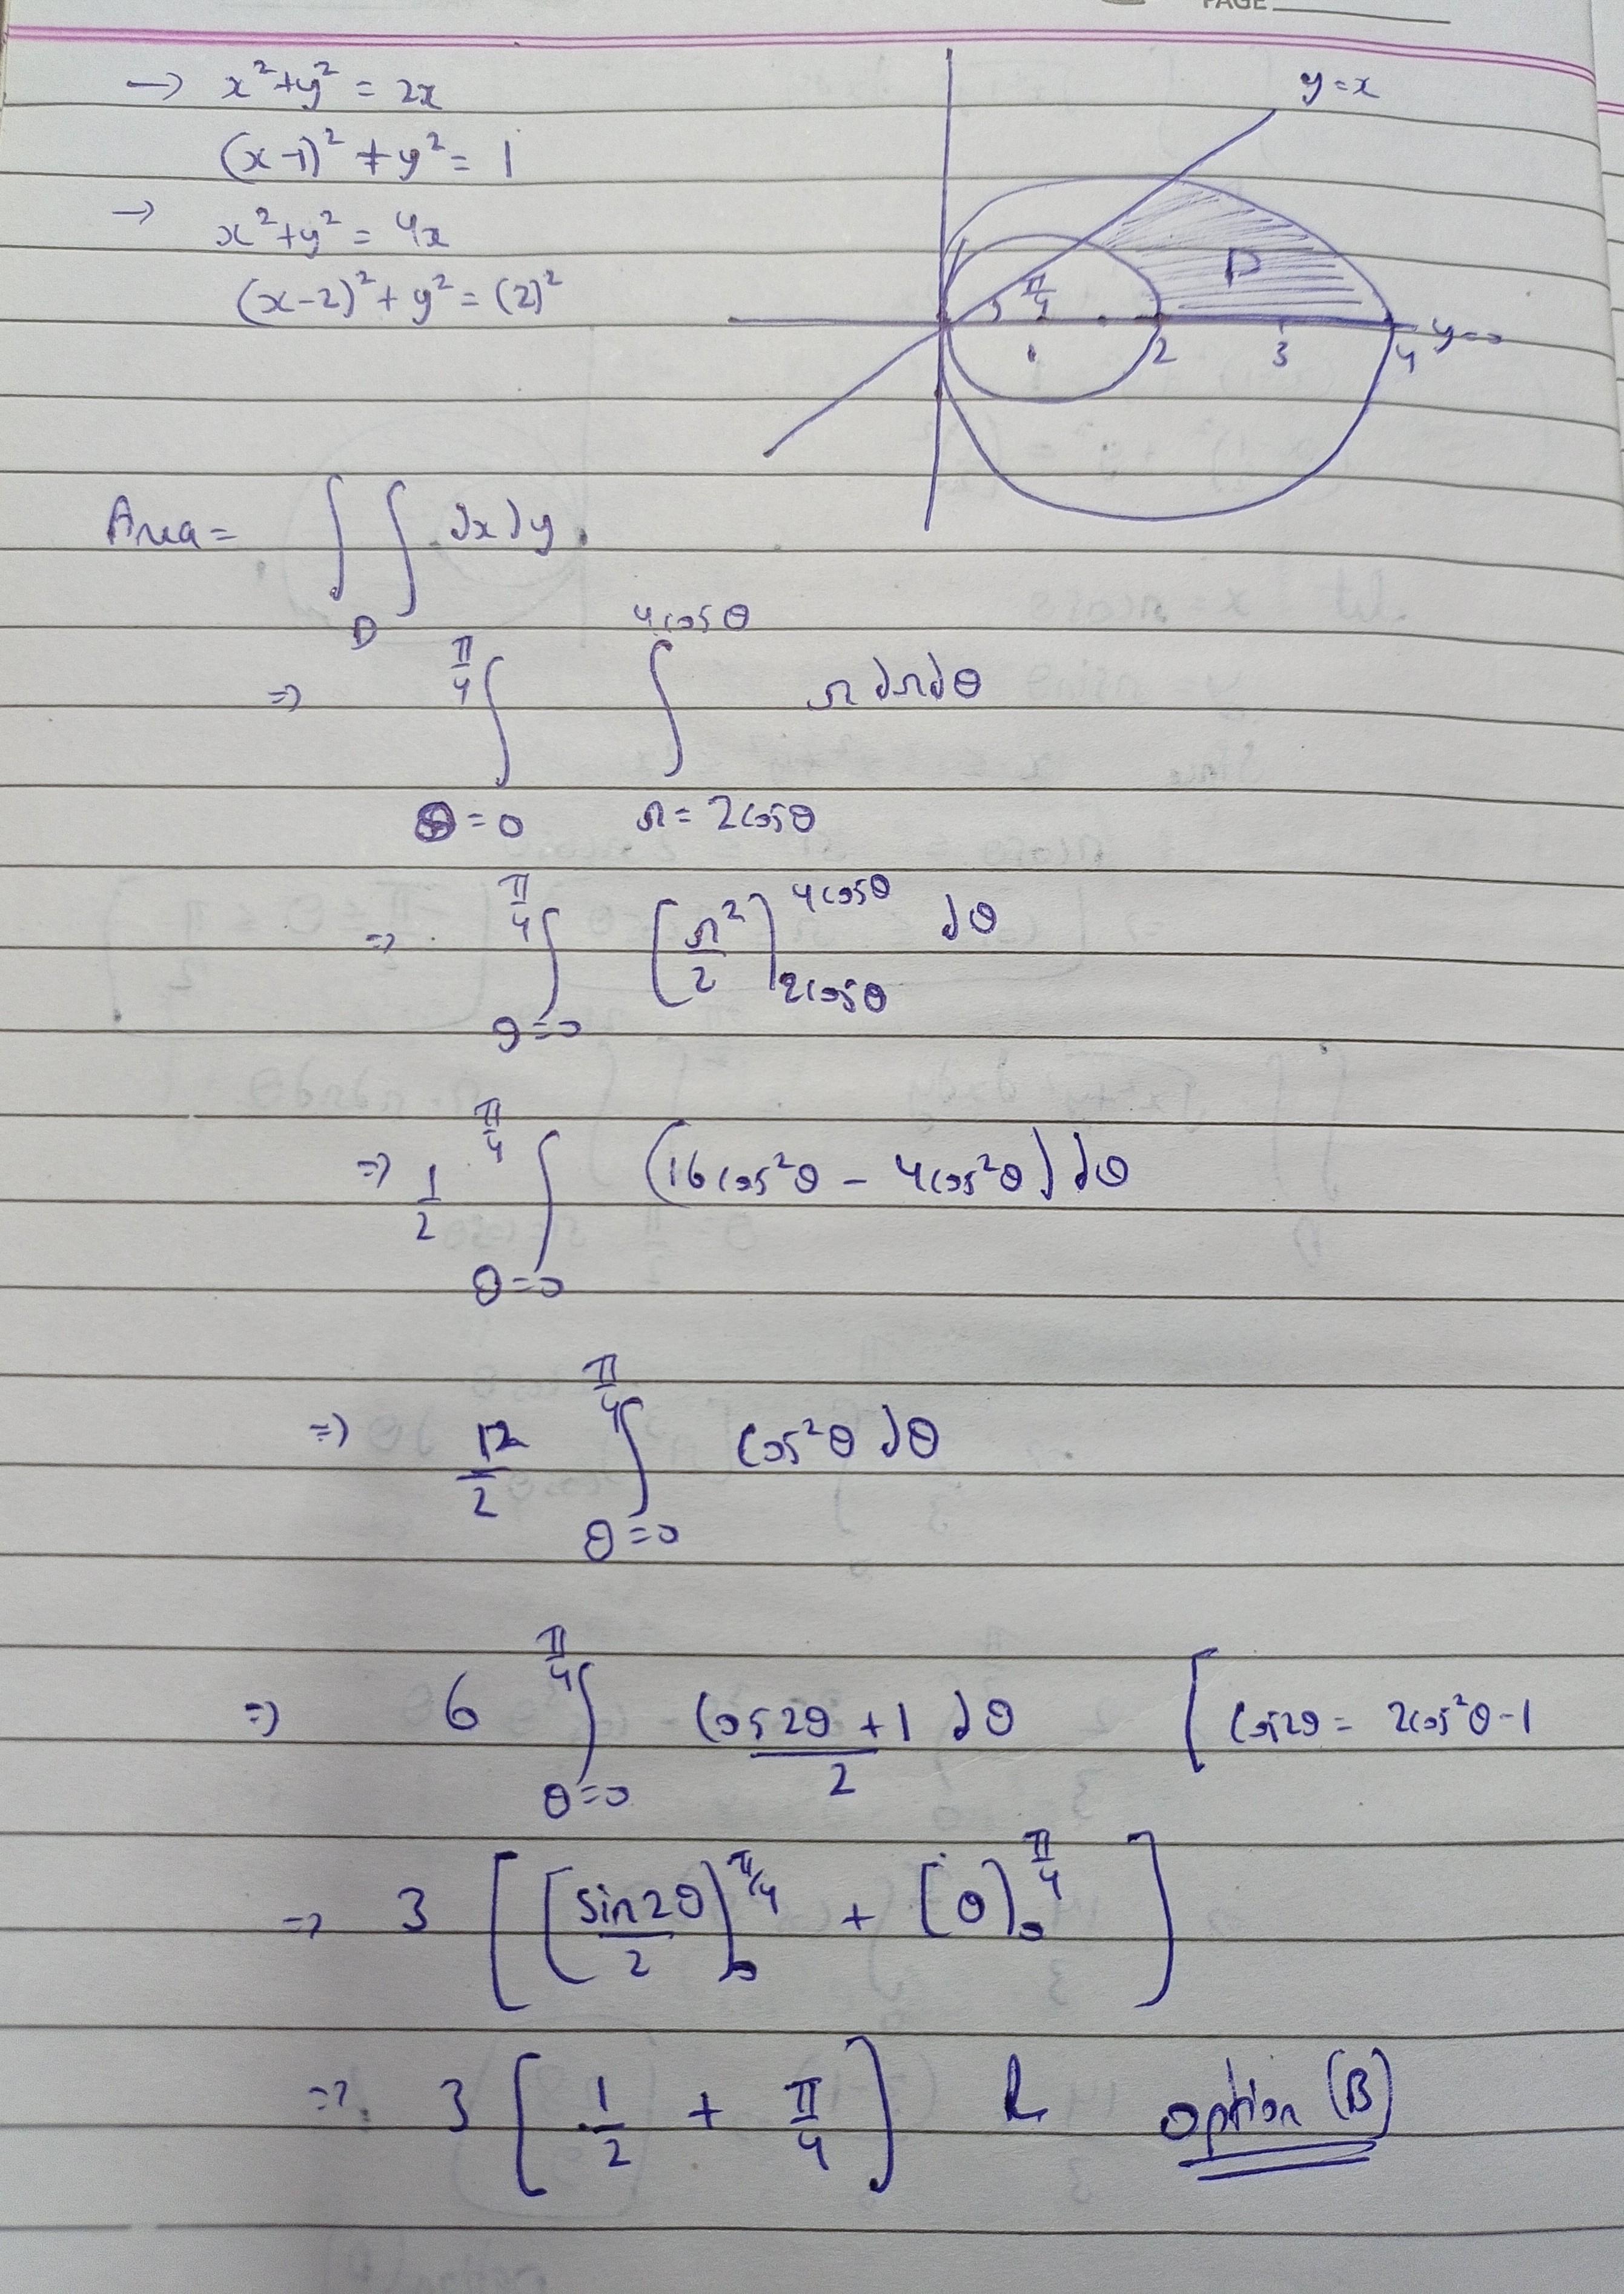 PAGE
→ x² + y² = 2x
(x-1)² + y² = 1
→ x² + y² = 4x
(x-2)² + y² = (2)²
y = x
π/4
D
1 2 3 4 y=0
Area = ∫∫_D dx dy.
⇒ ∫_{θ=0}^{π/4} ∫_{r=2cosθ}^{4cosθ} r dr dθ
⇒ ∫_{θ=0}^{π/4} [r²/2]_{2cosθ}^{4cosθ} dθ
⇒ 1/2 ∫_{θ=0}^{π/4} (16cos²θ - 4cos²θ) dθ
⇒ 12/2 ∫_{θ=0}^{π/4} cos²θ dθ
⇒ 6 ∫_{θ=0}^{π/4} (cos2θ + 1)/2 dθ [cos2θ = 2cos²θ-1
⇒ 3 [ [sin2θ/2]_0^{π/4} + [θ]_0^{π/4} ]
⇒ 3 [ 1/2 + π/4 ] option (B)